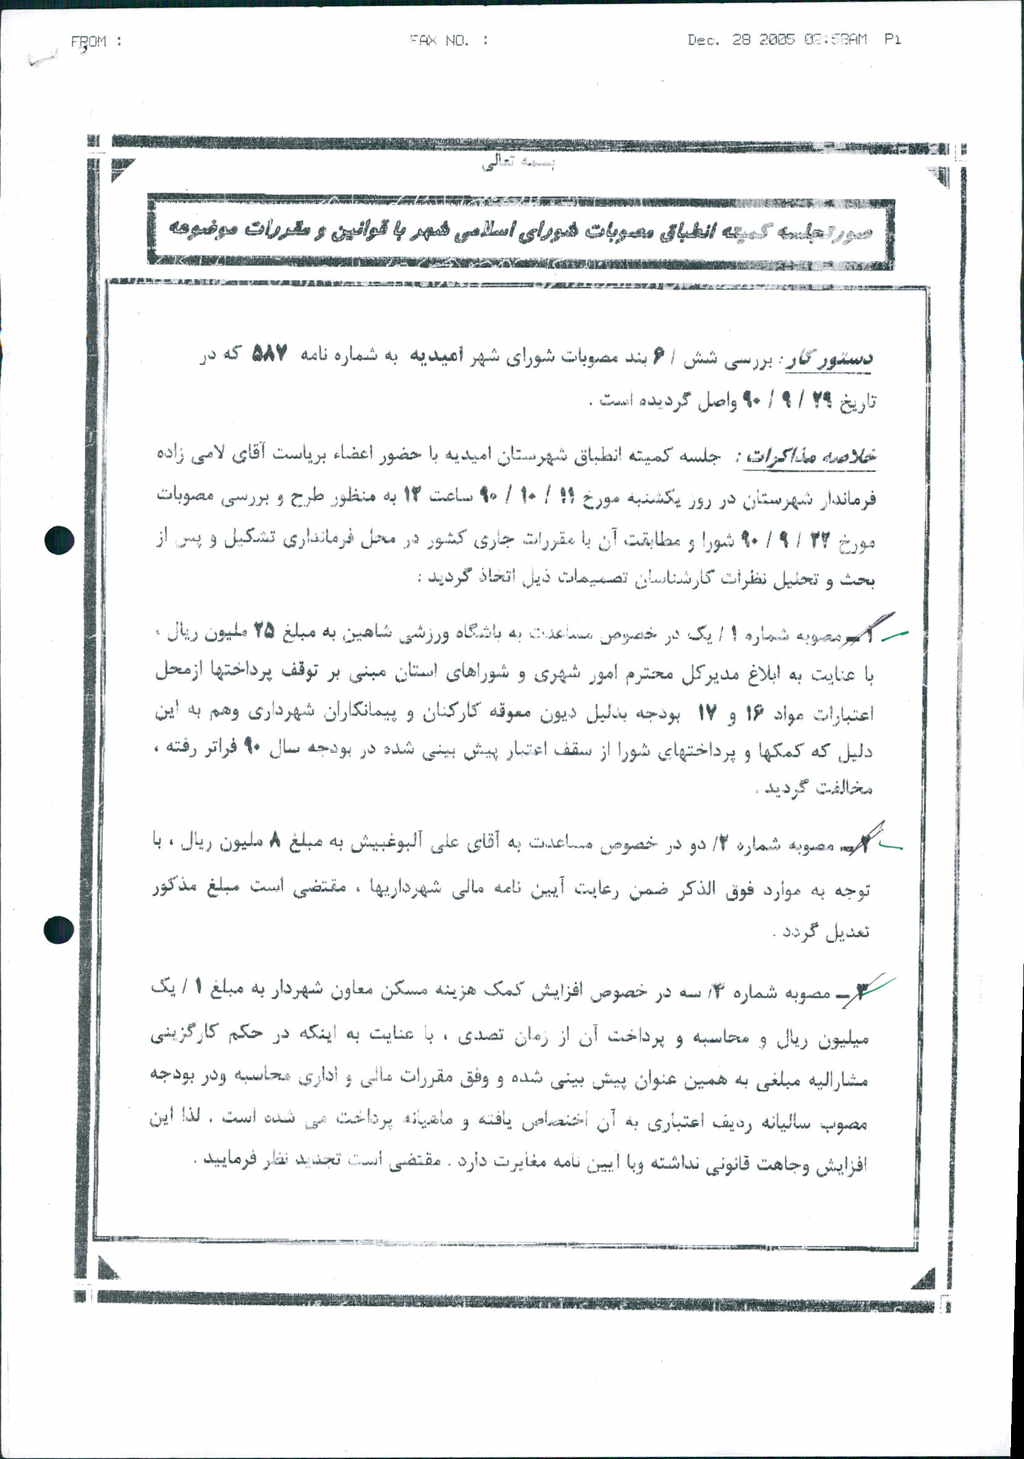 FROM :
FAX NO. :
Dec. 28 2005 P1
بسمه تعالی
صورتجلسه کمیته انطباق مصوبات شورای اسلامی شهر با قوانین و مقررات موضوعه
دستور کار : بررسی شش / ۶ بند مصوبات شورای شهر امیدیه به شماره نامه ۵۸۷ که در
تاریخ ۲۹ / ۹ / ۹۰ واصل گردیده است .
خلاصه مذاکرات : جلسه کمیته انطباق شهرستان امیدیه با حضور اعضاء بریاست آقای لامی زاده
فرماندار شهرستان در روز یکشنبه مورخ ۱۱ / ۱۰ / ۹۰ ساعت ۱۲ به منظور طرح و بررسی مصوبات
مورخ ۲۲ / ۹ / ۹۰ شورا و مطابقت آن با مقررات جاری کشور در محل فرمانداری تشکیل و پس از
بحث و تحلیل نظرات کارشناسان تصمیمات ذیل اتخاذ گردید :
۱ – مصوبه شماره ۱ / یک در خصوص مساعدت به باشگاه ورزشی شاهین به مبلغ ۲۵ ملیون ریال ،
با عنایت به ابلاغ مدیرکل محترم امور شهری و شوراهای استان مبنی بر توقف پرداختها ازمحل
اعتبارات مواد ۱۶ و ۱۷ بودجه بدلیل دیون معوقه کارکنان و پیمانکاران شهرداری وهم به این
دلیل که کمکها و پرداختهای شورا از سقف اعتبار پیش بینی شده در بودجه سال ۹۰ فراتر رفته ،
مخالفت گردید .
۲ – مصوبه شماره ۲/ دو در خصوص مساعدت به آقای علی آلبوغبیش به مبلغ ۸ ملیون ریال ، با
توجه به موارد فوق الذکر ضمن رعایت آیین نامه مالی شهرداریها ، مقتضی است مبلغ مذکور
تعدیل گردد .
۳ – مصوبه شماره ۳/ سه در خصوص افزایش کمک هزینه مسکن معاون شهردار به مبلغ ۱ / یک
میلیون ریال و محاسبه و پرداخت آن از زمان تصدی ، با عنایت به اینکه در حکم کارگزینی
مشارالیه مبلغی به همین عنوان پیش بینی شده و وفق مقررات مالی و اداری محاسبه ودر بودجه
مصوب سالیانه ردیف اعتباری به آن اختصاص یافته و ماهیانه پرداخت می شده است . لذا این
افزایش وجاهت قانونی نداشته وبا آیین نامه مغایرت دارد . مقتضی است تجدید نظر فرمایید .